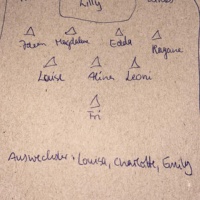 Lilly
Magdalena Edda
Louise Alina Leoni
Fri
Auswechsler: Louisa, Charlotte, Emily